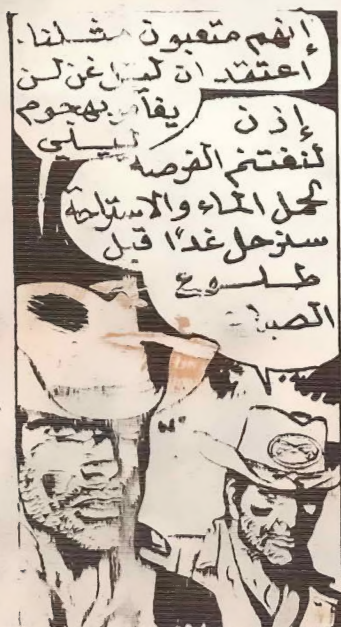 إنهم متعبون مثلنا.
أعتقد ان ليل غن لن
يغامر بهجوم
ليلي
إذن
لنغتنم الفرصة
لحمل الماء والاستراحة
سنرحل غدًا قبل
طلوع